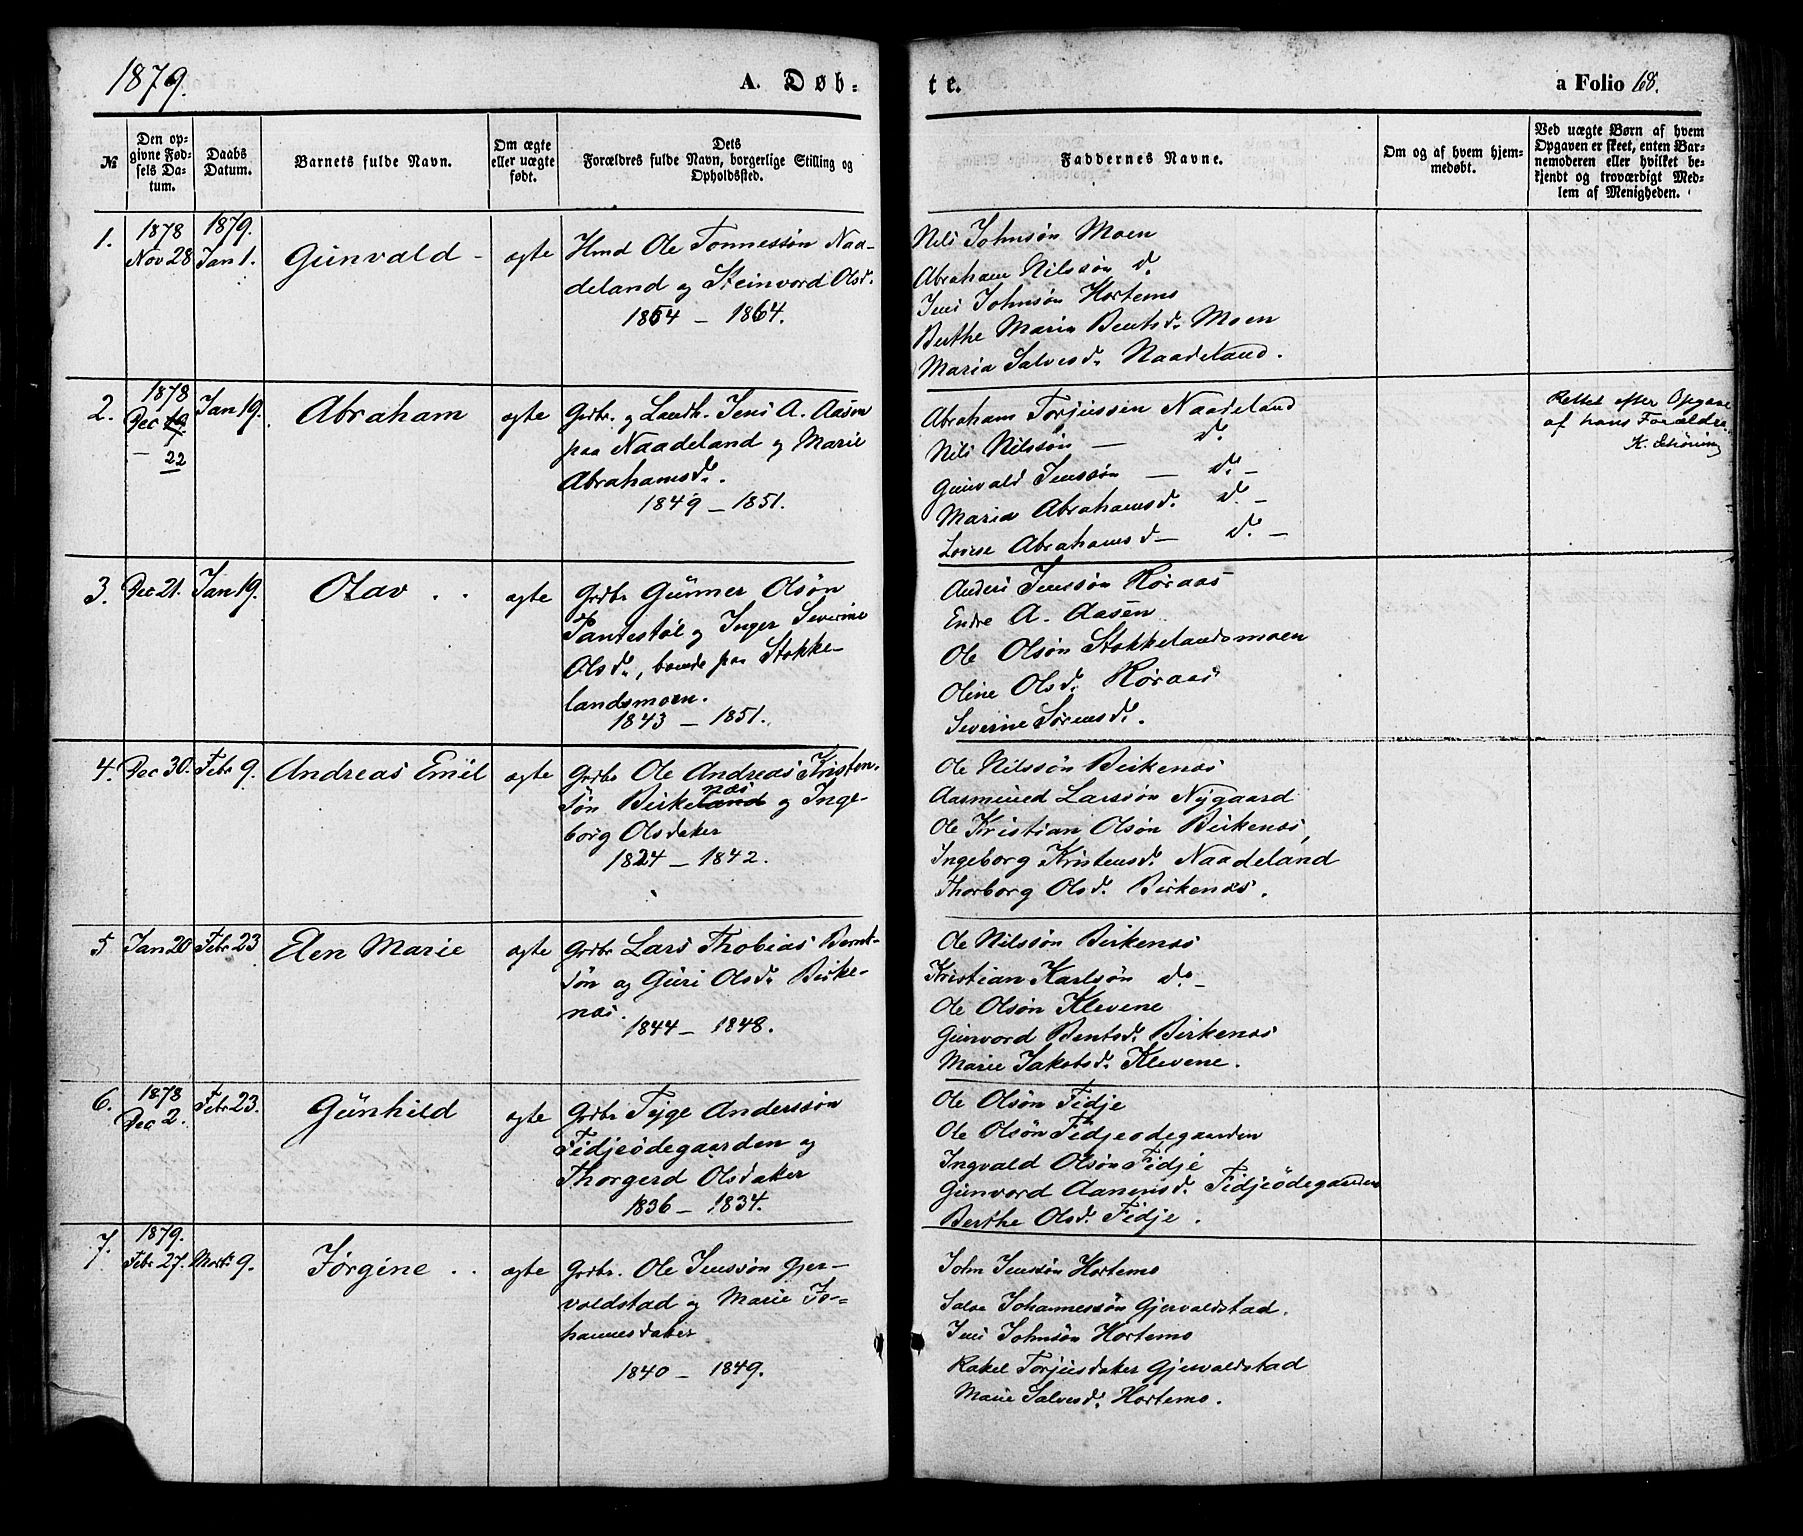 1879.
A. Døb-
te.
a Folio 68.
№
Den op-
givne Fød-
sels Da-
tum.
Daabs
Datum.
Barnets fulde Navn.
Om ægte
eller uægte
født.
Dets
Forældres fulde Navn, borgerlige Stilling og
Opholdssted.
Faddernes Navne.
Om og af hvem hjem-
medøbt.
Ved uægte Børn af hvem
Opgaven er skeet, enten Bar-
nemoderen eller hvilket be-
kjendt og troværdigt Med-
lem af Menigheden.
1.
1878
Nov 28
1879.
Jan 1.
Gunvald -
ægte
Hmd Ole Tonnessøn Naa-
deland og Steinvord Olsd.
1854 - 1864.
Nils Johnsøn Moen
Abraham Nilssøn d.
Jens Johnsøn Hortemo
Berthe Maria Bentsd. Moen
Maria Salvesd. Naadeland.
2.
1878
Dec
- 22
Jan 19.
Abraham
ægte
Grdbr. og Landh. Jens A. Aasen
paa Naadeland og Marie
Abrahamsd.
1849 - 1851.
Abraham Torjussen Naadeland
Nils Nilssøn - d.
Gunvald Jenssøn - d. -
Maria Abrahamsd. d. -
Lovise Abrahamsd - d. -
Rettet efter Opgave
af hans Forældre.
K. Schöning
3.
Dec 21.
Jan 19.
Olav . .
ægte
Grdbr Gunner Olsøn
Tantestøl og Inger Severine
Olsd., boende paa Stokke-
landsmoen.
1843 - 1851.
Anders Jenssøn Røraas
Endre A. Aasen
Ole Olsøn Stokkelandsmoen
Oline Olsd. Røraas
Severine Sørensd.
4.
Dec 30.
Febr 9.
Andreas Emil
ægte
Grdbr Ole Andreas Kristen-
søn Birkeland næs og Inge-
borg Olsdater
1824 - 1842.
Ole Nilssøn Birkenæs
Aasmund Larssøn Nygaard
Ole Kristian Olsøn Birkenæs,
Ingeborg Kristensd. Naadeland
Thorborg Olsd. Birkenæs.
5
Jan 20
Febr 23
Elen Marie
ægte
Grdbr Lars Thobias Bernt-
søn og Guri Olsd. Birke-
næs.
1844 - 1848.
Ole Nilssøn Birkenæs
Kristian Karlsøn d. -
Ole Olsøn Klevene
Gunvord Bentsd. Birkenæs
Marie Jakobsd. Klevene.
6.
1878
Dec 2.
Febr 23.
Gunhild
ægte
Grdbr Tyge Anderssøn
Fidjeødegaarden og
Thorgerd Olsdater
1836 - 1834.
Ole Olsøn Fidje
Ole Olsøn Fidjeødegaarden
Ingvald Olsøn Fidje
Gunvord Aanensd. Fidjeødegaarden
Berthe Olsd. Fidje.
7.
1879.
Febr 27.
Marts 9.
Jørgine . .
ægte
Grdbr. Ole Jenssøn Gjer-
valdstad og Marie Jo-
hannesdater
1840 - 1849.
John Jenssøn Hortemo
Salve Johannessøn Gjervaldstad.
Jens Johnsøn Hortemo
Rakel Torjusdater Gjervaldstad
Marie Salvesd. Hortemo.